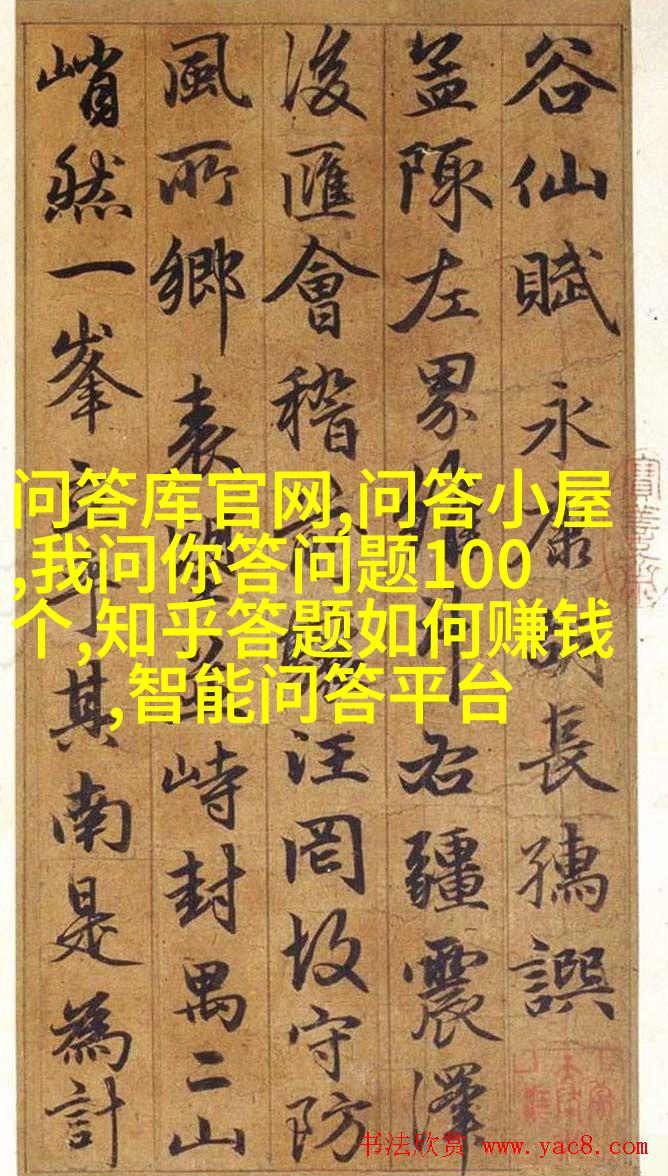 谷仙賦 永康胡長孺譔
左界斗右疆震澤
浚匯會稽汪罔故守防
風所鄉表望峙封禺二山
峭然一峯立于其南是為計
问答库官网,问答小屋
,我问你答问题100
个,知乎答题如何赚钱
,智能问答平台
书法欣赏 www.yac8.com